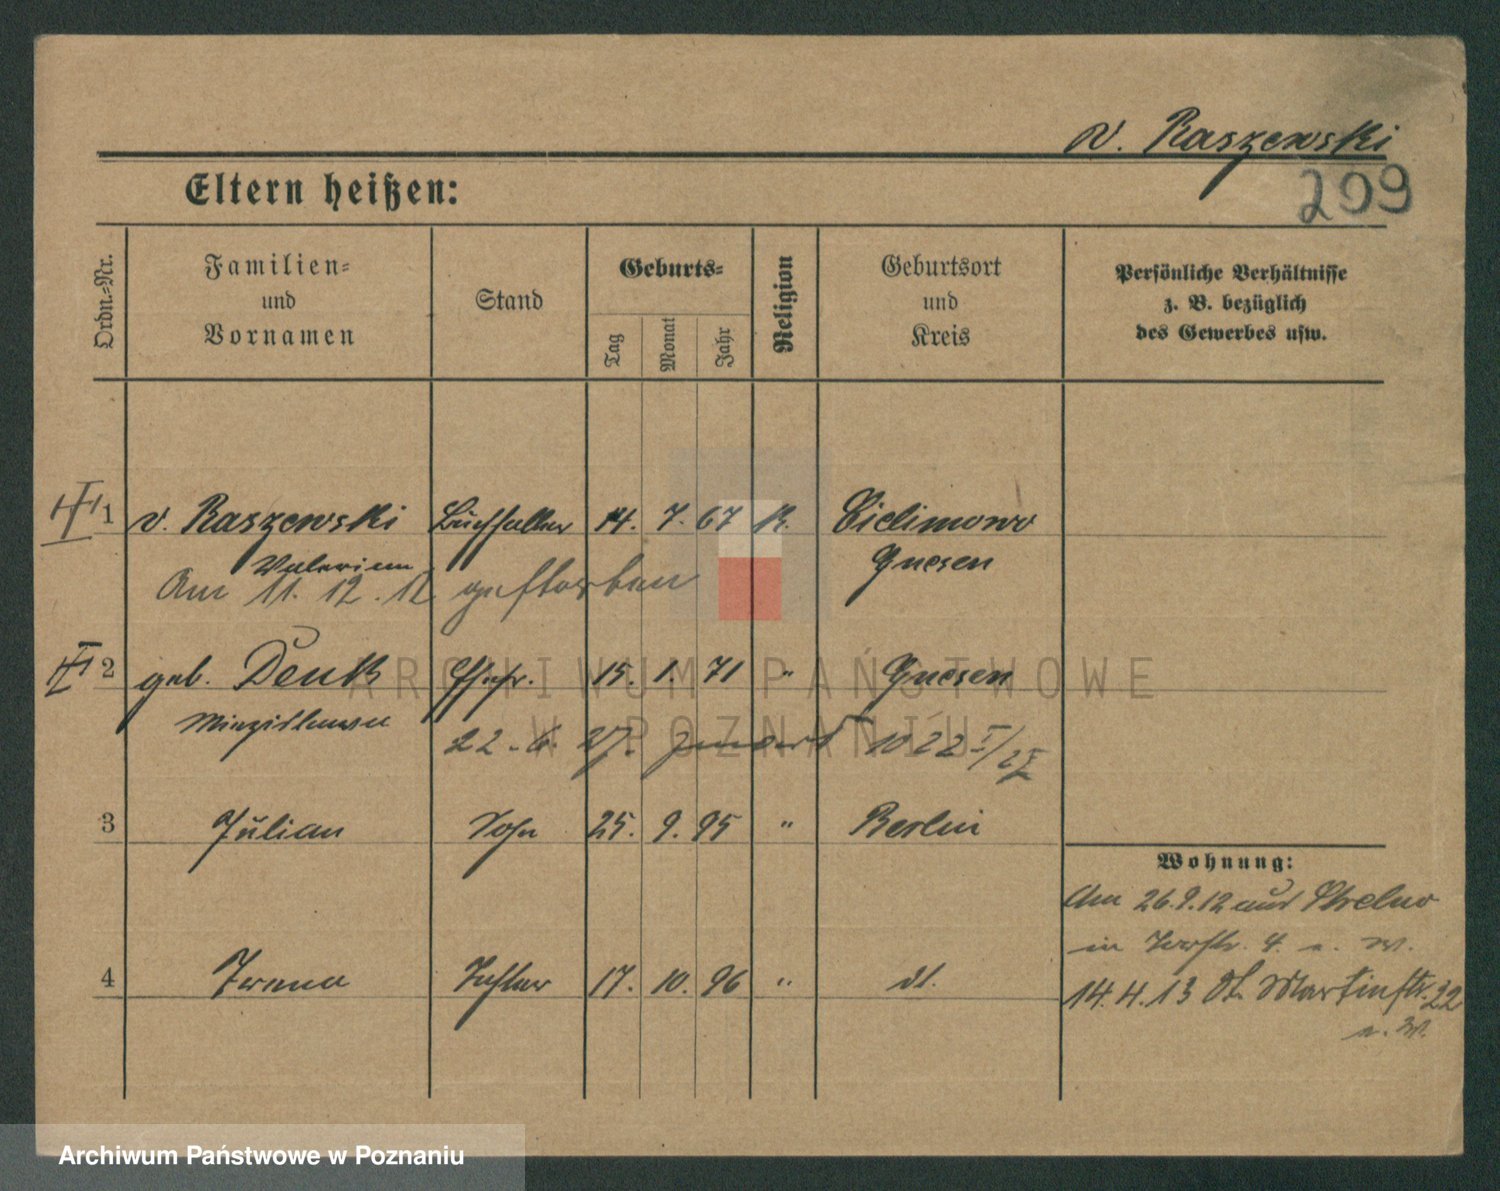 v. Raszewski
299
Eltern heißen:
Ordn.-Nr.
Familien-
und
Vornamen
Stand
Geburts-
Tag
Monat
Jahr
Religion
Geburtsort
und
Kreis
Persönliche Verhältnisse
z. B. bezüglich
des Gewerbes usw.
1 v. Raszewski Buchhalter 14. 7. 67 K. Cielimowo
Valerian Gnesen
Am 11. 12. 12 gestorben
2 geb. Denk Ehefr. 15. 1. 71 " Gnesen
22. 6. 27.
3 Julian Sohn 25. 9. 95 " Berlin
Wohnung:
Am 26.9.12 aus Strelno
in 4.
4 Irena Tochter 17. 10. 96 " dt.
14.4.13 St. Martinstr. 32
ARCHIWUM PAŃSTWOWE
W POZNANIU
Archiwum Państwowe w Poznaniu